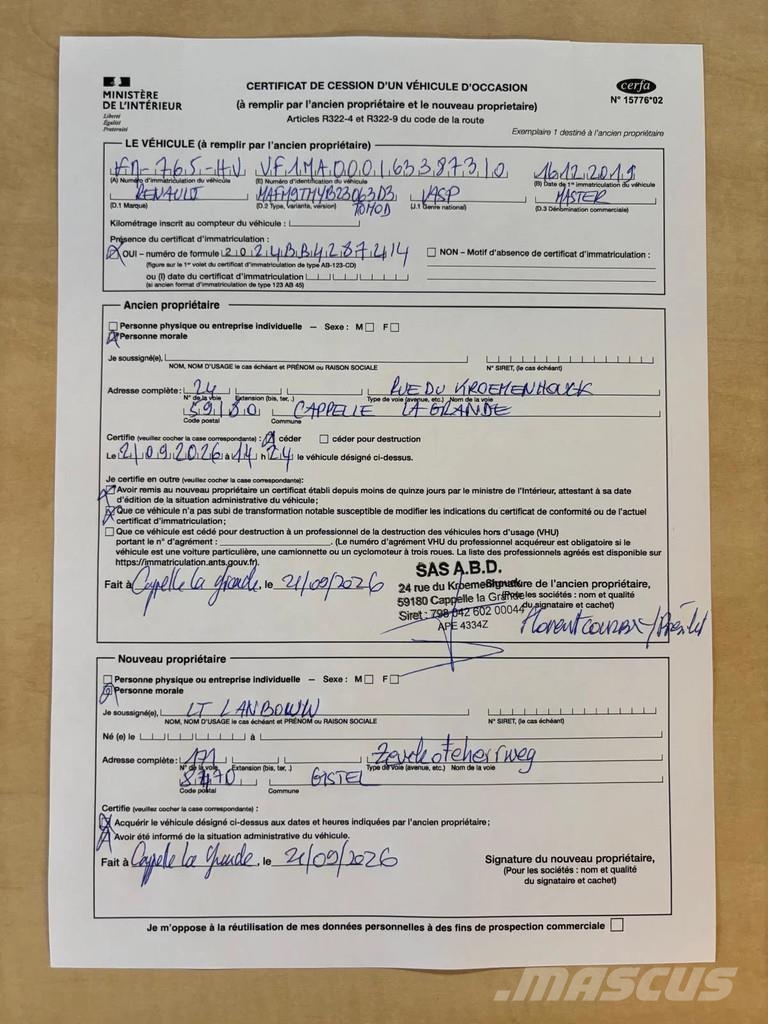 MINISTÈRE
DE L'INTÉRIEUR
Liberté
Égalité
Fraternité
CERTIFICAT DE CESSION D'UN VÉHICULE D'OCCASION
(à remplir par l'ancien propriétaire et le nouveau proprietaire)
Articles R322-4 et R322-9 du code de la route
cerfa
N° 15776*02
Exemplaire 1 destiné à l'ancien propriétaire
LE VÉHICULE (à remplir par l'ancien propriétaire)
765-HV VF1MA000163387310 16122019
(A) Numéro d'immatriculation du véhicule (E) Numéro d'identification du véhicule (B) Date de 1re immatriculation du véhicule
RENAULT MAFM9THYB23063D3 VASP MASTER
(D.1 Marque) (D.2 Type, Variante, version) (J.1 Genre national) (D.3 Dénomination commerciale)
Kilométrage inscrit au compteur du véhicule :
Présence du certificat d'immatriculation :
OUI - numéro de formule 2024BB4287414 NON - Motif d'absence de certificat d'immatriculation :
(figure sur le 1er volet du certificat d'immatriculation de type AB-123-CD)
ou (I) date du certificat d'immatriculation
(si ancien format d'immatriculation de type 123 AB 45)
Ancien propriétaire
Personne physique ou entreprise individuelle – Sexe : M F
Personne morale
Je soussigné(e),
NOM, NOM D'USAGE le cas échéant et PRÉNOM ou RAISON SOCIALE N° SIRET, (le cas échéant)
Adresse complète : 24 RUE DU KROEMENHOUCK
N° de la voie Extension (bis, ter, .) Type de voie (avenue, etc.) Nom de la voie
59180 CAPPELLE LA GRANDE
Code postal Commune
Certifie (veuillez cocher la case correspondante) : céder céder pour destruction
Le 21092026 à 14 h 24 le véhicule désigné ci-dessus.
Je certifie en outre (veuillez cocher la case correspondante):
Avoir remis au nouveau propriétaire un certificat établi depuis moins de quinze jours par le ministre de l'Intérieur, attestant à sa date
d'édition de la situation administrative du véhicule;
Que ce véhicule n'a pas subi de transformation notable susceptible de modifier les indications du certificat de conformité ou de l'actuel
certificat d'immatriculation;
Que ce véhicule est cédé pour destruction à un professionnel de la destruction des véhicules hors d'usage (VHU)
portant le n° d'agrément : . (Le numéro d'agrément VHU du professionnel acquéreur est obligatoire si le
véhicule est une voiture particulière, une camionnette ou un cyclomoteur à trois roues. La liste des professionnels agréés est disponible sur
https://immatriculation.ants.gouv.fr).
SAS A.B.D.
24 rue du Kroemenhouck
59180 Cappelle la Grande
Siret : 798 042 602 00044
APE 4334Z
Fait à Cappelle la grande, le 21/09/2026 Signature de l'ancien propriétaire,
(Pour les sociétés : nom et qualité
du signataire et cachet)
Florent
Nouveau propriétaire
Personne physique ou entreprise individuelle – Sexe : M F
Personne morale
Je soussigné(e), LT LANBOUW
NOM, NOM D'USAGE le cas échéant et PRÉNOM ou RAISON SOCIALE N° SIRET, (le cas échéant)
Né (e) le à
Adresse complète : 171
N° de la voie Extension (bis, ter, .) Type de voie (avenue, etc.) Nom de la voie
8470 GISTEL
Code postal Commune
Certifie (veuillez cocher la case correspondante) :
Acquérir le véhicule désigné ci-dessus aux dates et heures indiquées par l'ancien propriétaire;
Avoir été informé de la situation administrative du véhicule.
Fait à Cappelle la Grande, le 21/09/2026 Signature du nouveau propriétaire,
(Pour les sociétés : nom et qualité
du signataire et cachet)
Je m'oppose à la réutilisation de mes données personnelles à des fins de prospection commerciale
.MASCUS